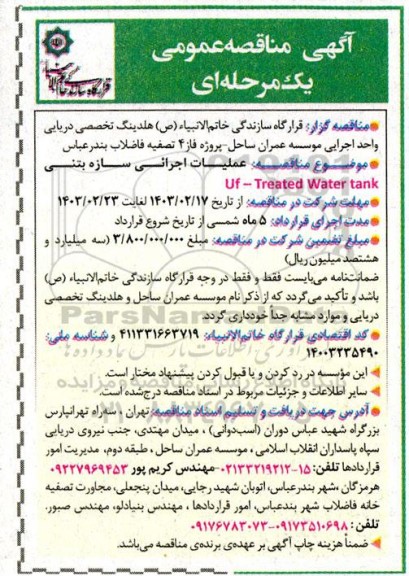 آگهی مناقصه‌عمومی
یک‌مرحله‌ای
قرارگاه سازندگی خاتم الانبیاء
مناقصه گزار: قرارگاه سازندگی خاتم‌الانبیاء (ص) هلدینگ تخصصی دریایی
واحد اجرایی موسسه عمران ساحل-پروژه فاز۴ تصفیه فاضلاب بندرعباس
موضوع مناقصــه: عملیــات اجرائــی ســازه بتنــی
Uf – Treated Water tank
مهلت شرکت در مناقصه: از تاریخ ۱۴۰۳/۰۲/۱۷ لغایت ۱۴۰۳/۰۲/۲۳
مدت اجرای قرارداد: ۵ ماه شمسی از تاریخ شروع قرارداد
مبلغ تضمین شرکت در مناقصه: مبلغ ۳/۸۰۰/۰۰۰/۰۰۰ (سه میلیارد و
هشتصد میلیون ریال)
ضمانت‌نامه می‌بایست فقط و فقط در وجه قرارگاه سازندگی خاتم‌الانبیاء (ص)
باشد و تأکید می‌گردد که از ذکر نام موسسه عمران ساحل و هلدینگ تخصصی
دریایی و موارد مشابه جداً خودداری گردد.
کد اقتصادی قرارگاه خاتم‌الانبیاء: ۴۱۱۳۳۱۶۶۳۷۱۹ و شناسه ملی:
۱۴۰۰۳۲۳۵۴۹۰
این مؤسسه در رد کردن و یا قبول کردن پیشنهاد مختار است.
سایر اطلاعات و جزئیات مربوط در اسناد مناقصه درج‌شده است.
آدرس جهت دریافت و تسلیم اسناد مناقصه: تهران ، سه‌راه تهرانپارس
بزرگراه شهید عباس دوران (اسب‌دوانی) ، میدان مهتدی، جنب نیروی دریایی
سپاه پاسداران انقلاب اسلامی ، موسسه عمران ساحل ، طبقه دوم، مدیریت امور
قراردادها تلفن: ۱۵-۰۲۱۳۳۲۱۹۲۱۲-مهندس کریم پور ۰۹۲۲۷۹۶۹۴۵۳
هرمزگان ،شهر بندرعباس، اتوبان شهید رجایی، میدان پنجعلی، مجاورت تصفیه
خانه فاضلاب شهر بندرعباس، امور قراردادها ، مهندس بنیادلو، مهندس صبور.
تلفن: ۰۹۱۷۳۵۱۰۶۹۸-۰۹۱۷۶۷۸۳۰۷۳
ضمناً هزینه چاپ آگهی بر عهده‌ی برنده‌ی مناقصه می‌باشد.